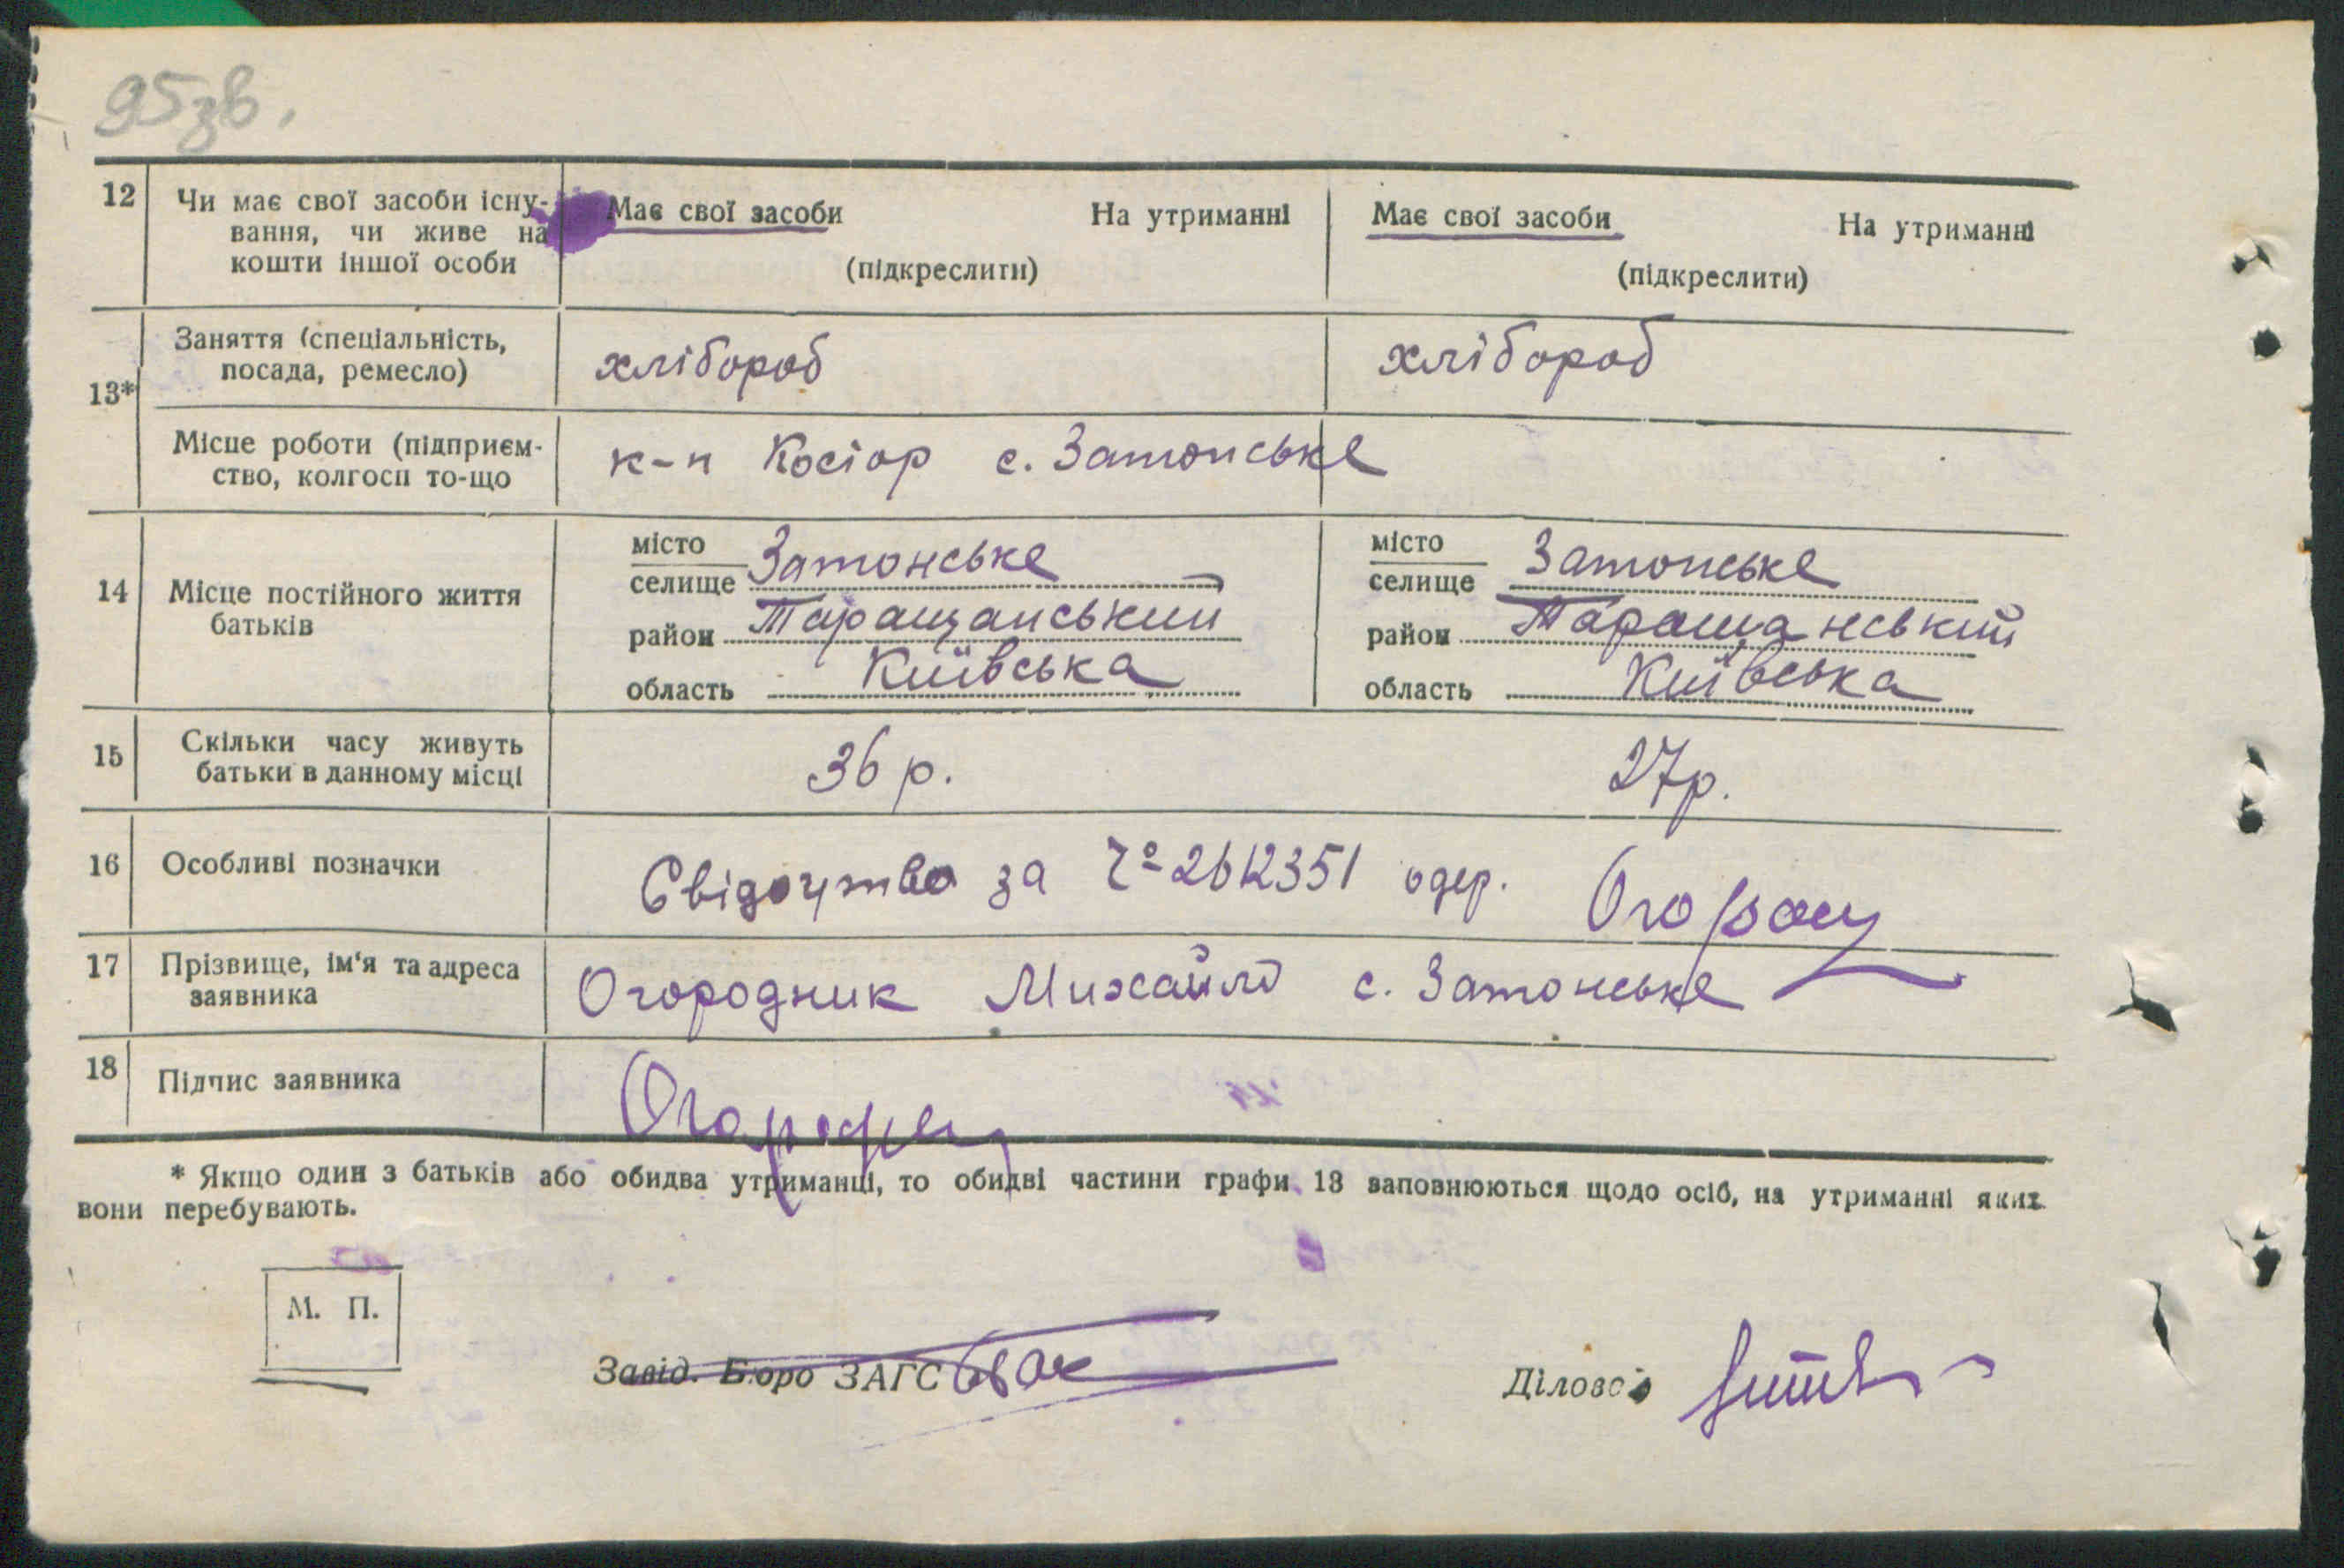 95зв.
12 Чи має свої засоби існу-
вання, чи живе на
кошти іншої особи
Має свої засоби На утриманні
(підкреслити)
Має свої засоби На утриманні
(підкреслити)
13*
Заняття (спеціальність,
посада, ремесло)
хлібороб
хлібороб
Місце роботи (підприєм-
ство, колгосп то-що
к-п Косіор с. Затонське
14 Місце постійного життя
батьків
місто
селище Затонське
район Таращанський
область Київська
місто
селище Затонське
район Таращанський
область Київська
15 Скільки часу живуть
батьки в данному місці
36 р.
27р.
16 Особливі позначки
Свідоцтво за Ч° 2612351 одер.
17 Прізвище, ім'я та адреса
заявника
Огородник Михайло с. Затонське
18 Підпис заявника
* Якщо один з батьків або обидва утриманці, то обидві частини графи 13 заповнюються щодо осіб, на утриманні яких
вони перебувають.
М. П.
Завід. Бюро ЗАГС
Діловод